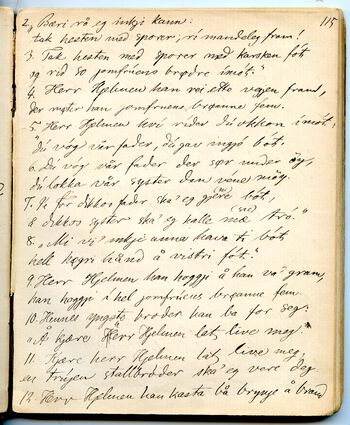 115
2, Bæri rå eg inkje kann:
tak hesten med sporer, ri mandeleg fram!
3. Tak hesten med sporer med karsken fót
og rid so jomfruens brødre imót."
4. Herr Hjelmen han rei etto vegen fram,
der møter han jomfruens brøanne fem.
5. Herr Hjelmen kvi rider du okkon imót,
"Du vog vår fader, du gav inkje bót.
6. Du vóg vår fader der sør under öy,
du lokka vår syster den véne möy.
7. Ja, for dikkos fader ska' eg gjere bót,
å dikkos syster ska' eg halle mæ (sic) tró."
8. "Mi vi' inkje anna hava ti bót,
hell högri hånd å vistri fót."
9. Herr Hjelmen han hoggji å han va' gram,
han hoggji i hel jomfruens brøanne fem.
10. Hennes yngste broder han ba for seg:
"Å kjære Herr Hjelmen lat live meg."
11. Kjære herr Hjelmen lat live meg,
en trugen stallbroder ska' eg vere deg
12. Herr Hjelmen han kasta bå brynje å brand